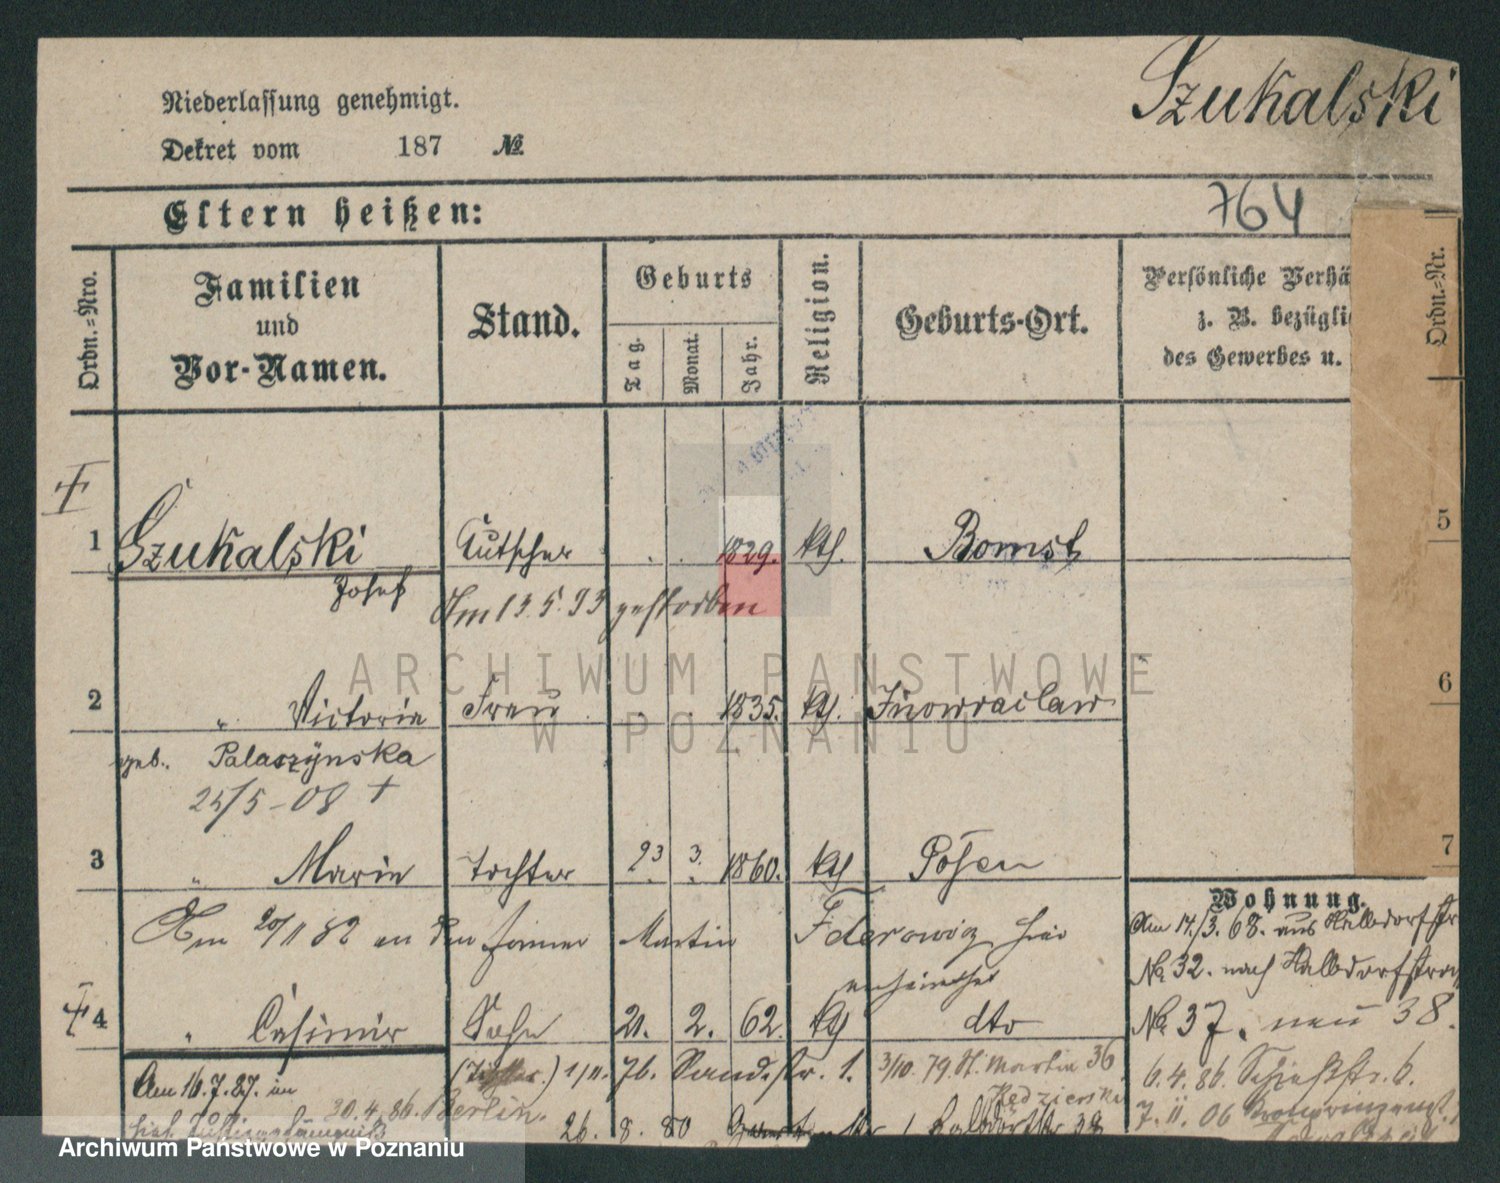 Szukalski
Niederlassung genehmigt.
Dekret vom 187 №
Eltern heißen:
764
Ordn.-Nro.
Familien
und
Vor-Namen.
Stand.
Geburts
Tag.
Monat.
Jahr.
Religion.
Geburts-Ort.
Persönliche Verhä
z. B. bezügli
des Gewerbes u.
Ordn.-Nr.
1 Szukalski Kutscher 1829. kth. Bomst 5
Josef Am 13.5.93 gestorben
2 " Victoria Frau 1835. kth. Inowraclaw 6
geb. Palaszÿnska
25/5-08 +
3 " Marie Tochter 23 3. 1860. kth Posen 7
Wohnung.
Am 20/11 82 an den Martin Federowicz hier
verheirathet
Am 14./3. 68. aus Halbdorfstr
№ 32. nach Halbdorfstras
4 " Casimir Sohn 21. 2. 62. kth dto
№ 37. neu 38.
1/11. 76. Sandstr. 1. 3/10. 79. St. Martin 36
Kedzierski
6.4.86. Schießstr. 6.
Am 16.7.27. im
30.4.86. Berlin.
26. 8. 80 Halbdorfstr 38
7. 11. 06
ARCHIWUM PAŃSTWOWE
W POZNANIU
Archiwum Państwowe w Poznaniu